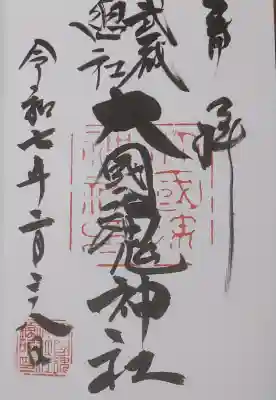 奉拝
武蔵
總社
大國魂神社
令和七年二月二八日